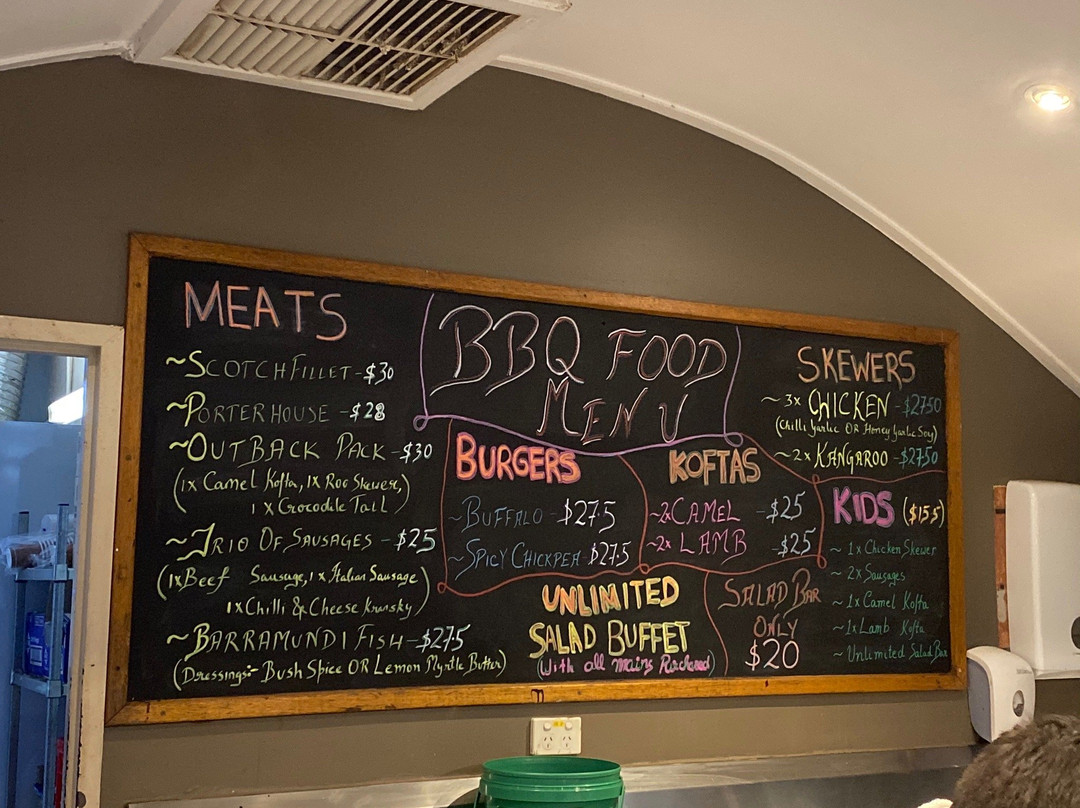 MEATS
~SCOTCH FILLET-$30
~PORTERHOUSE-$28
~OUTBACK PACK-$30
(1x Camel Kofta, 1x Roo Skewer,
1x Crocodile Tail)
~TRIO OF SAUSAGES-$25
(1xBeef Sausage, 1x Italian Sausage
1xChilli & Cheese Kransky)
~BARRAMUNDI FISH-$27.5
(Dressings:- Bush Spice OR Lemon Myrtle Butter)
BBQ FOOD
MENU
BURGERS
~BUFFALO-$27.5
~SPICY CHICKPEA-$27.5
KOFTAS
~2xCAMEL -$25
~2x LAMB -$25
UNLIMITED
SALAD BUFFET
(With all mains Purchased)
SALAD BAR
ONLY
$20
SKEWERS
~3x CHICKEN-$27.50
(Chilli Garlic OR Honey Garlic Soy)
~2x KANGAROO-$27.50
KIDS ($15.5)
~1x Chicken Skewer
~2x Sausages
~1x Camel Kofta
~1x Lamb Kofta
~Unlimited Salad Bar